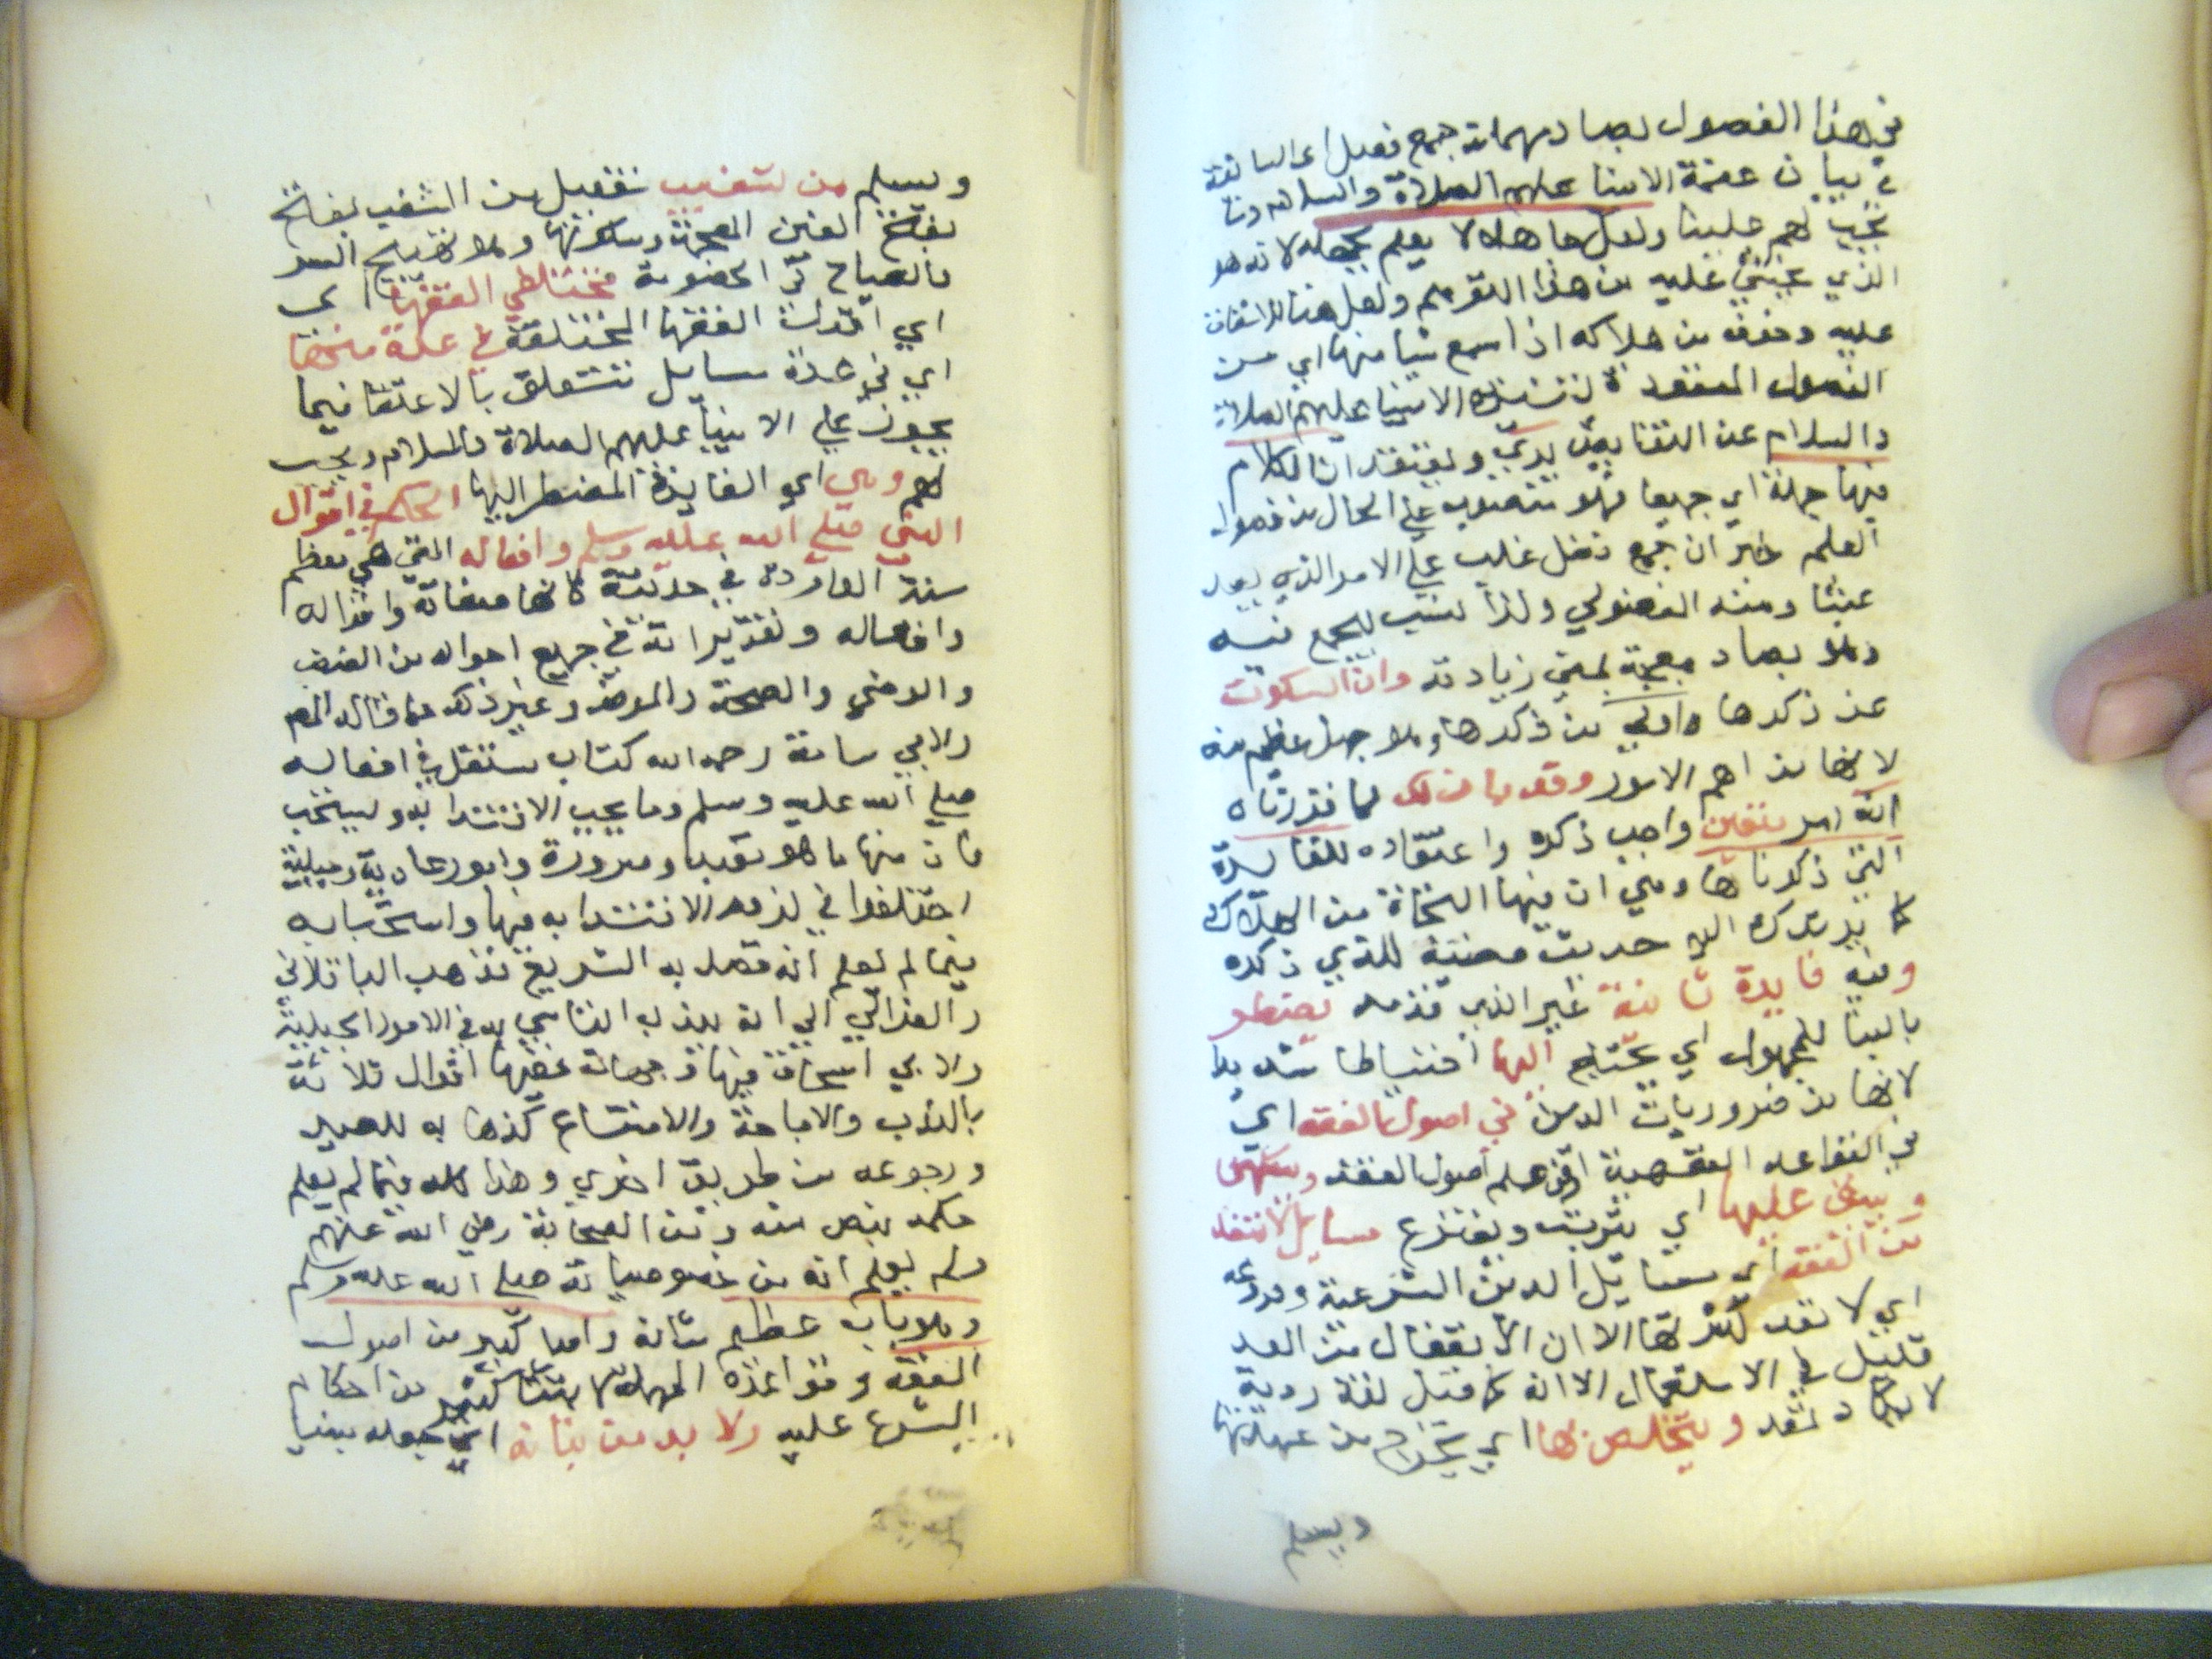 في هذا الفصول بصاد مهملة جمع فصل اي السابقة
في بيان عصمة الانبيا عليهم الصلاة والسلام وما
يجب لهم علينا ولعل جاهلا لا يعلم بجهله لانه هو
الذي يخشى عليه من هذا التوهم ولعل هنا للاشفاق
عليه وخوف من هلاكه اذا سمع شيا منها اي من
الفصول المنعقدة لتنزيه الانبيا عليهم الصلاة
والسلام عن النقايص يرى ويعتقد ان الكلام
فيها جملة اي جميعا فهو منصوب على الحال من فصول
العلم خبر ان جمع فضل غلب على الامر الذي يعد
عبثا ومنه الفضولي ولذا نسب للجمع فيه
وهو بضاد معجمة بمعنى زيادته وان السكوت
عن ذكرها اولى من ذكرها وهو جهل عظيم منه
لانها من اهم الامور وقد بان لك لما قررناه
انه امر متعين واجب ذكره واعتقاده للفايدة
التي ذكرناها وهي ان فيها النجاة من الهلاك
كما يرشدك اليه حديث صفية الذي ذكره
وفيه فايدة ثانية غير الذي قدمه يضطر
بالبنا للمجهول اي يحتاج اليها احتياطا شديدا
لانها من ضروريات الدين في اصول الفقه اي
في القواعد الفقهية او في علم اصول الفقه
ويبنى عليها اي يترتب ويتفرع مسايل لا تنعد
من الفقه اي مسايل الدين الشرعية وفروعه
اي لا تعد لكثرتها الا ان الانفعال من العد
قليل في الاستعمال الا انه كما قيل لغة ردية
لا يكاد تعد ويتخلص بها اي يخرج من عهدتها
ويسلم
ويسلم من تشغيب تفعيل من الشغب بفتح
بفتح الغين المعجمة وسكونها وهو تهييج الشر
بالصياح في الخصومة مختلطي الفقها اي
اي اقوال الفقها المختلفة في عدة منها
اي في عدة مسايل تتعلق بالاعتقاد فيما
يجوز على الانبيا عليهم الصلاة والسلام ويجب
لهم وهي اي الفايدة المضطر اليها الحكم في اقوال
النبي صلى الله عليه وسلم وافعاله التي هي معظم
سننه الواردة في حديثه كانها صفاته واقواله
وافعاله وتقريراته في جميع احواله من الغضب
والرضى والصحة والمرض وغير ذلك مما قاله المص
ولابي شامة رحمه الله كتاب مستقل في افعاله
صلى الله عليه وسلم وما يجب الاقتدا به وليستحب
فان منها ما هو تعبد وضرورة وامور عادية وجبلية
اختلفوا في لزوم الاقتدا به فيها واستحبابه
فيما لم يعلم انه قصد به التشريع فذهب الباقلاني
والغزالي الى انه يندب التاسي به في الامور الجبلية
ولابي اسحاق فيها وجهان ففيها اقوال ثلاثة
بالندب والاباحة والامتناع كذهابه للعيد
ورجوعه من طريق اخرى وهذا كله فيما لم يعلم
حكمه بنص منه ومن الصحابة رضي الله عنهم
ولم يعلم انه من خصوصياته صلى الله عليه وسلم
وهو باب عظيم شانه واصل كبير من اصول
الفقه وقواعده المهمة من احكام
الشرع عليه ولا بد من بنائه اي جعله مبنيا